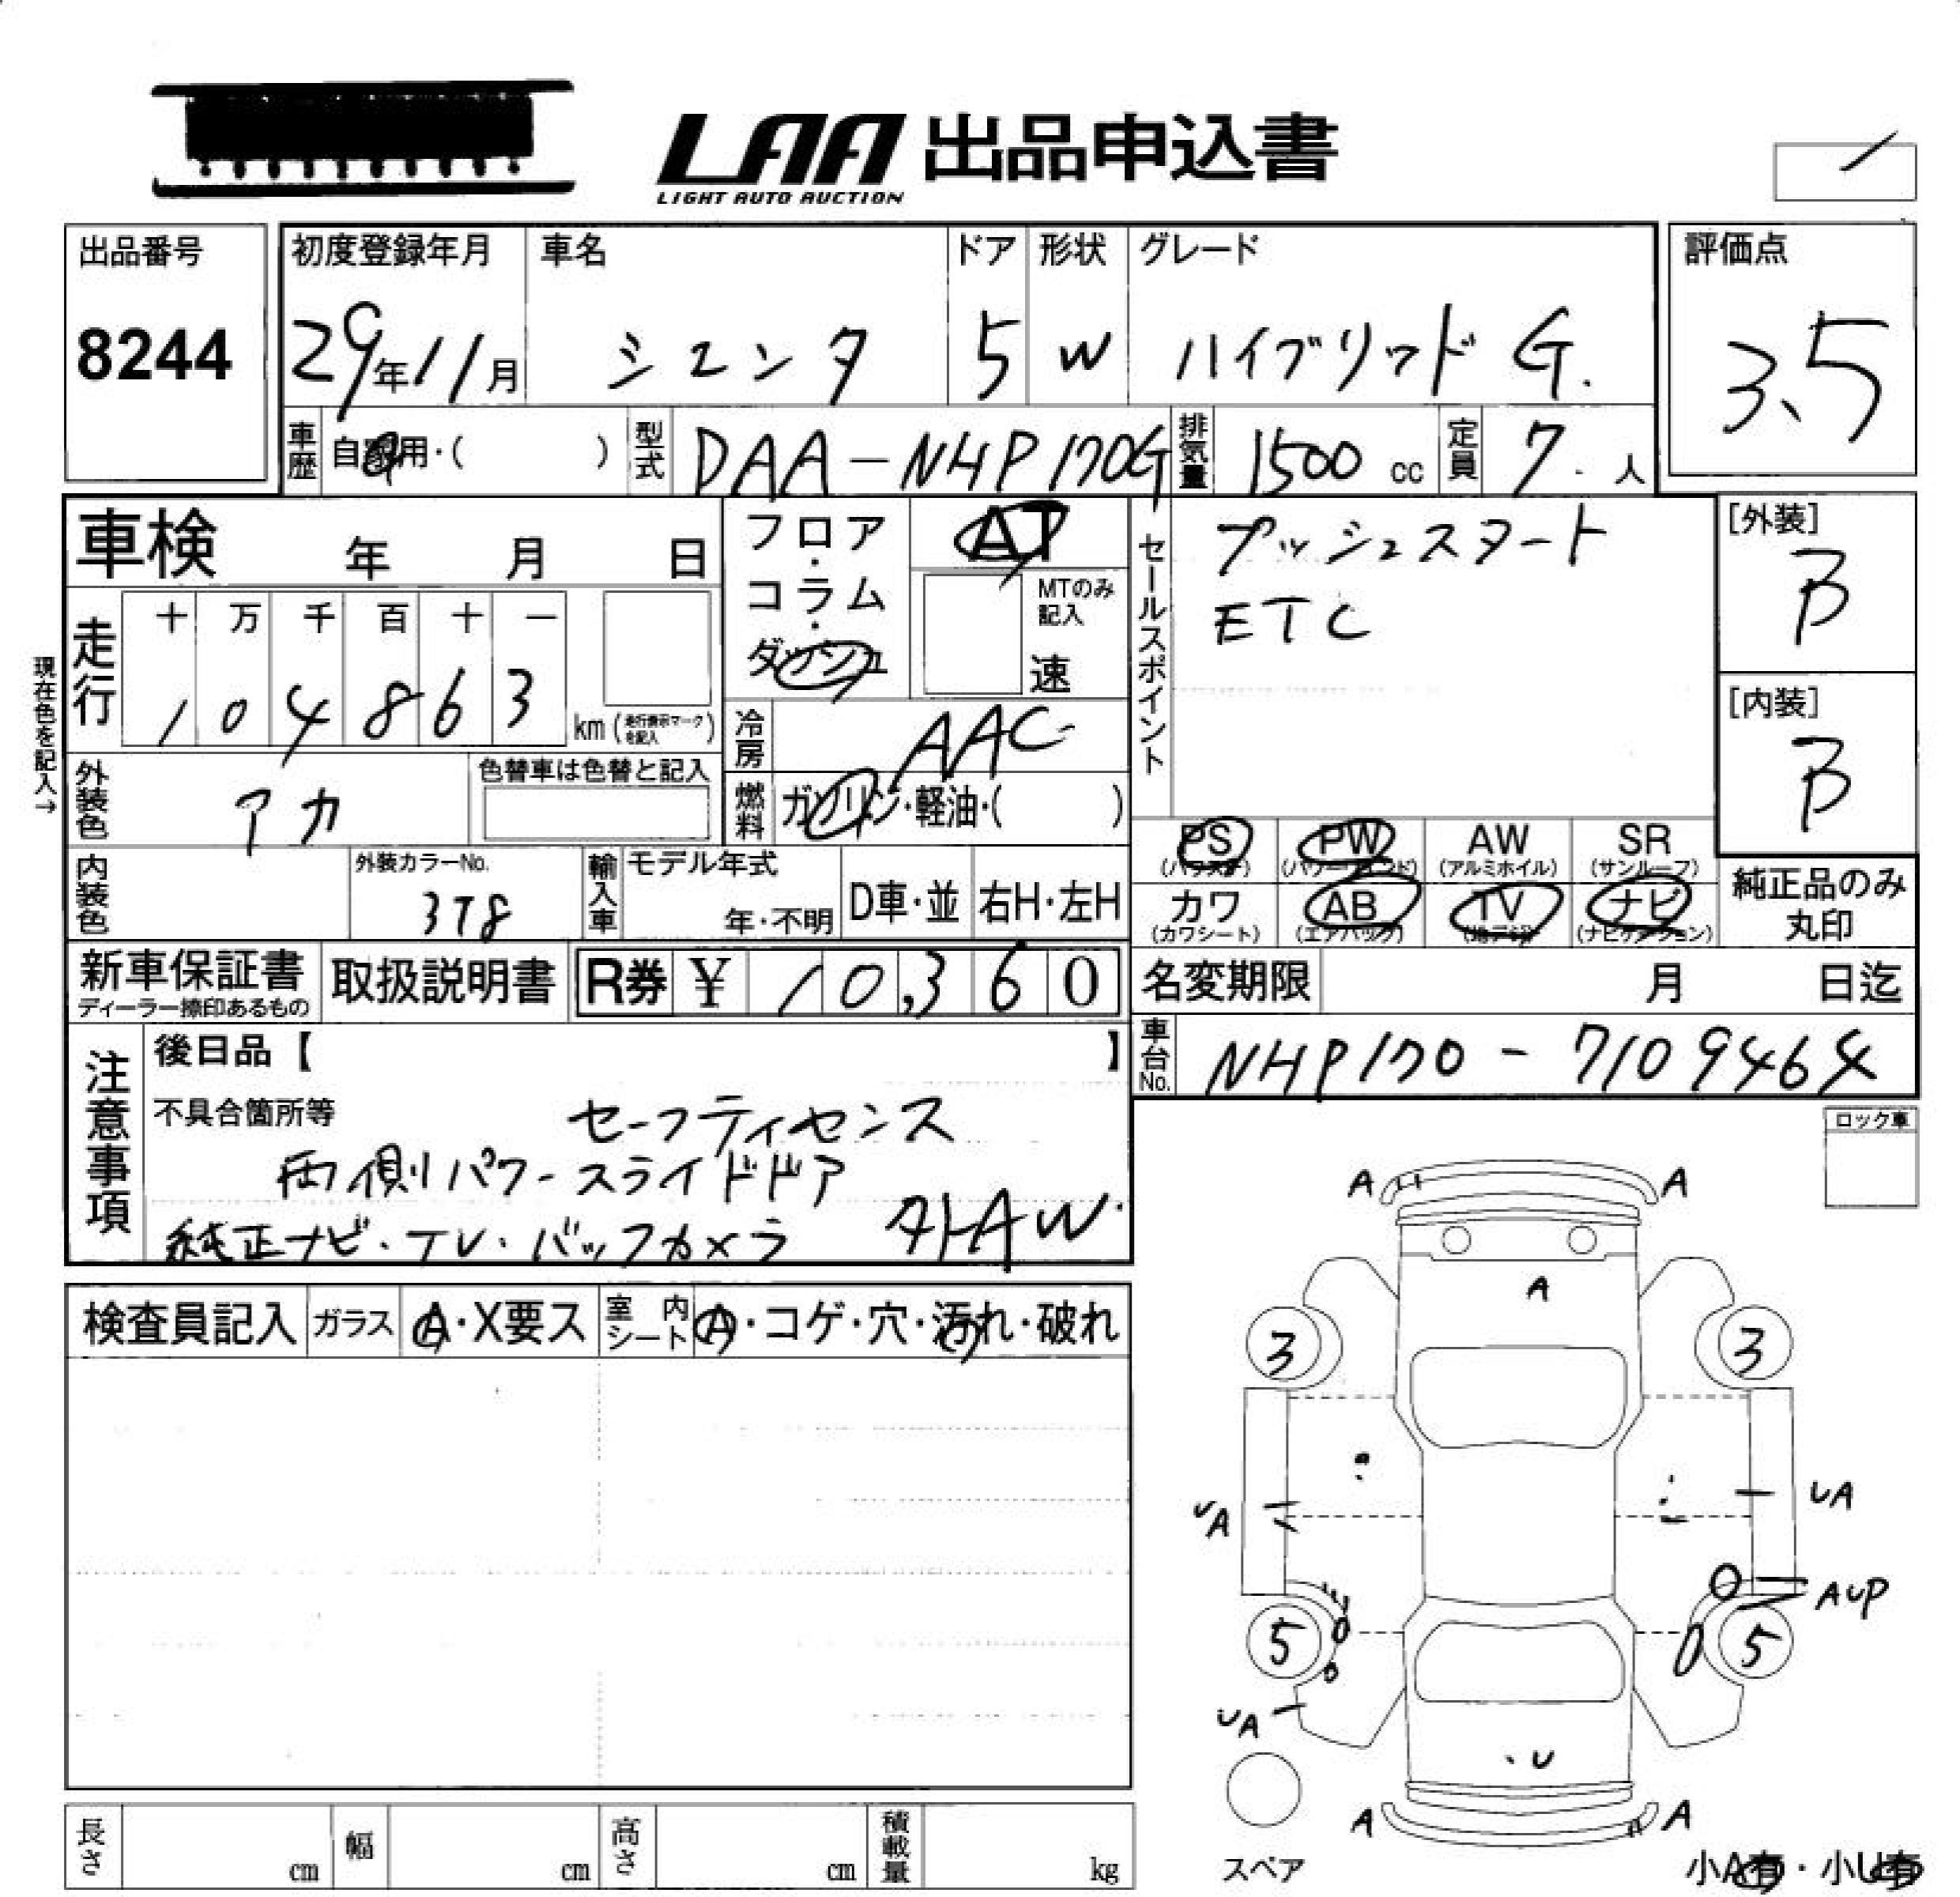 LAA 出品申込書
LIGHT AUTO AUCTION
出品番号
8244
初度登録年月
29年11月
車名
シエンタ
ドア
5
形状
W
グレード
ハイブリッド G.
評価点
3.5
車歴
自家用・( )
型式
DAA-NHP170G
排気量
1500 cc
定員
7. 人
車検 年 月 日
フロア・コラム・ダッシュ
AT
MTのみ記入
速
セールスポイント
プッシュスタート
ETC
[外装]
B
[内装]
B
現在色を記入→
走行
十 万 千 百 十 一
1 0 4 8 6 3 km (走行表示マークを記入)
冷房
AAC
外装色
アカ
色替車は色替と記入
燃料
ガソリン・軽油・( )
PS (パワステ)
PW (パワーウィンド)
AW (アルミホイル)
SR (サンルーフ)
カワ (カワシート)
AB (エアバック)
TV (地デジ)
ナビ (ナビゲーション)
純正品のみ丸印
内装色
外装カラーNo.
3T8
輸入車
モデル年式
年・不明
D車・並
右H・左H
新車保証書
ディーラー捺印あるもの
取扱説明書
R券 ¥ 10,360
名変期限 月 日迄
車台No.
NHP170-7109464
注意事項
後日品【 】
不具合箇所等
セーフティセンス
両側パワースライドドア
純正ナビ・TV・バックカメラ
外AW
ロック車
検査員記入
ガラス
A・X要ス
室内シート
A・コゲ・穴・汚れ・破れ
A A
A
3 3
UA UA
AUP
5 5
UA
・U
A A
スペア
小A有・小U有
長さ cm
幅 cm
高さ cm
積載量 kg